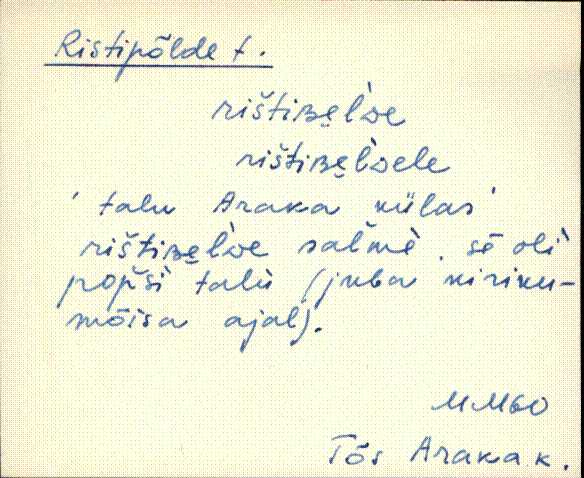 Ristipõlde t.
rištiʙe̮l̀de
rištiʙe̮l̀dele
' talu Araka külas '
rištiʙe̮l̀de sašmè. sē oli
popši talù (juba kiriku-
mõisa ajal).
MM60
Tõs Araka k.